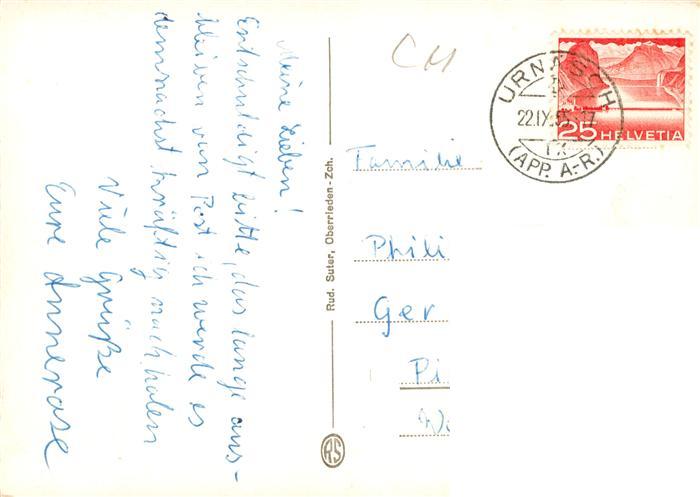 Meine Lieben!
Entschuldigt bitte, das lange aus-
bleiben von Post ich werde es
demnächst kräftig nachholen
Viele Grüße
Eure Annerose
Rud. Suter, Oberrieden-Zch.
RS
CH
URNÄSCH
22.IX.55.-17
(APP. A.-R.)
25 HELVETIA
Familie
Phili
Ger
Pi